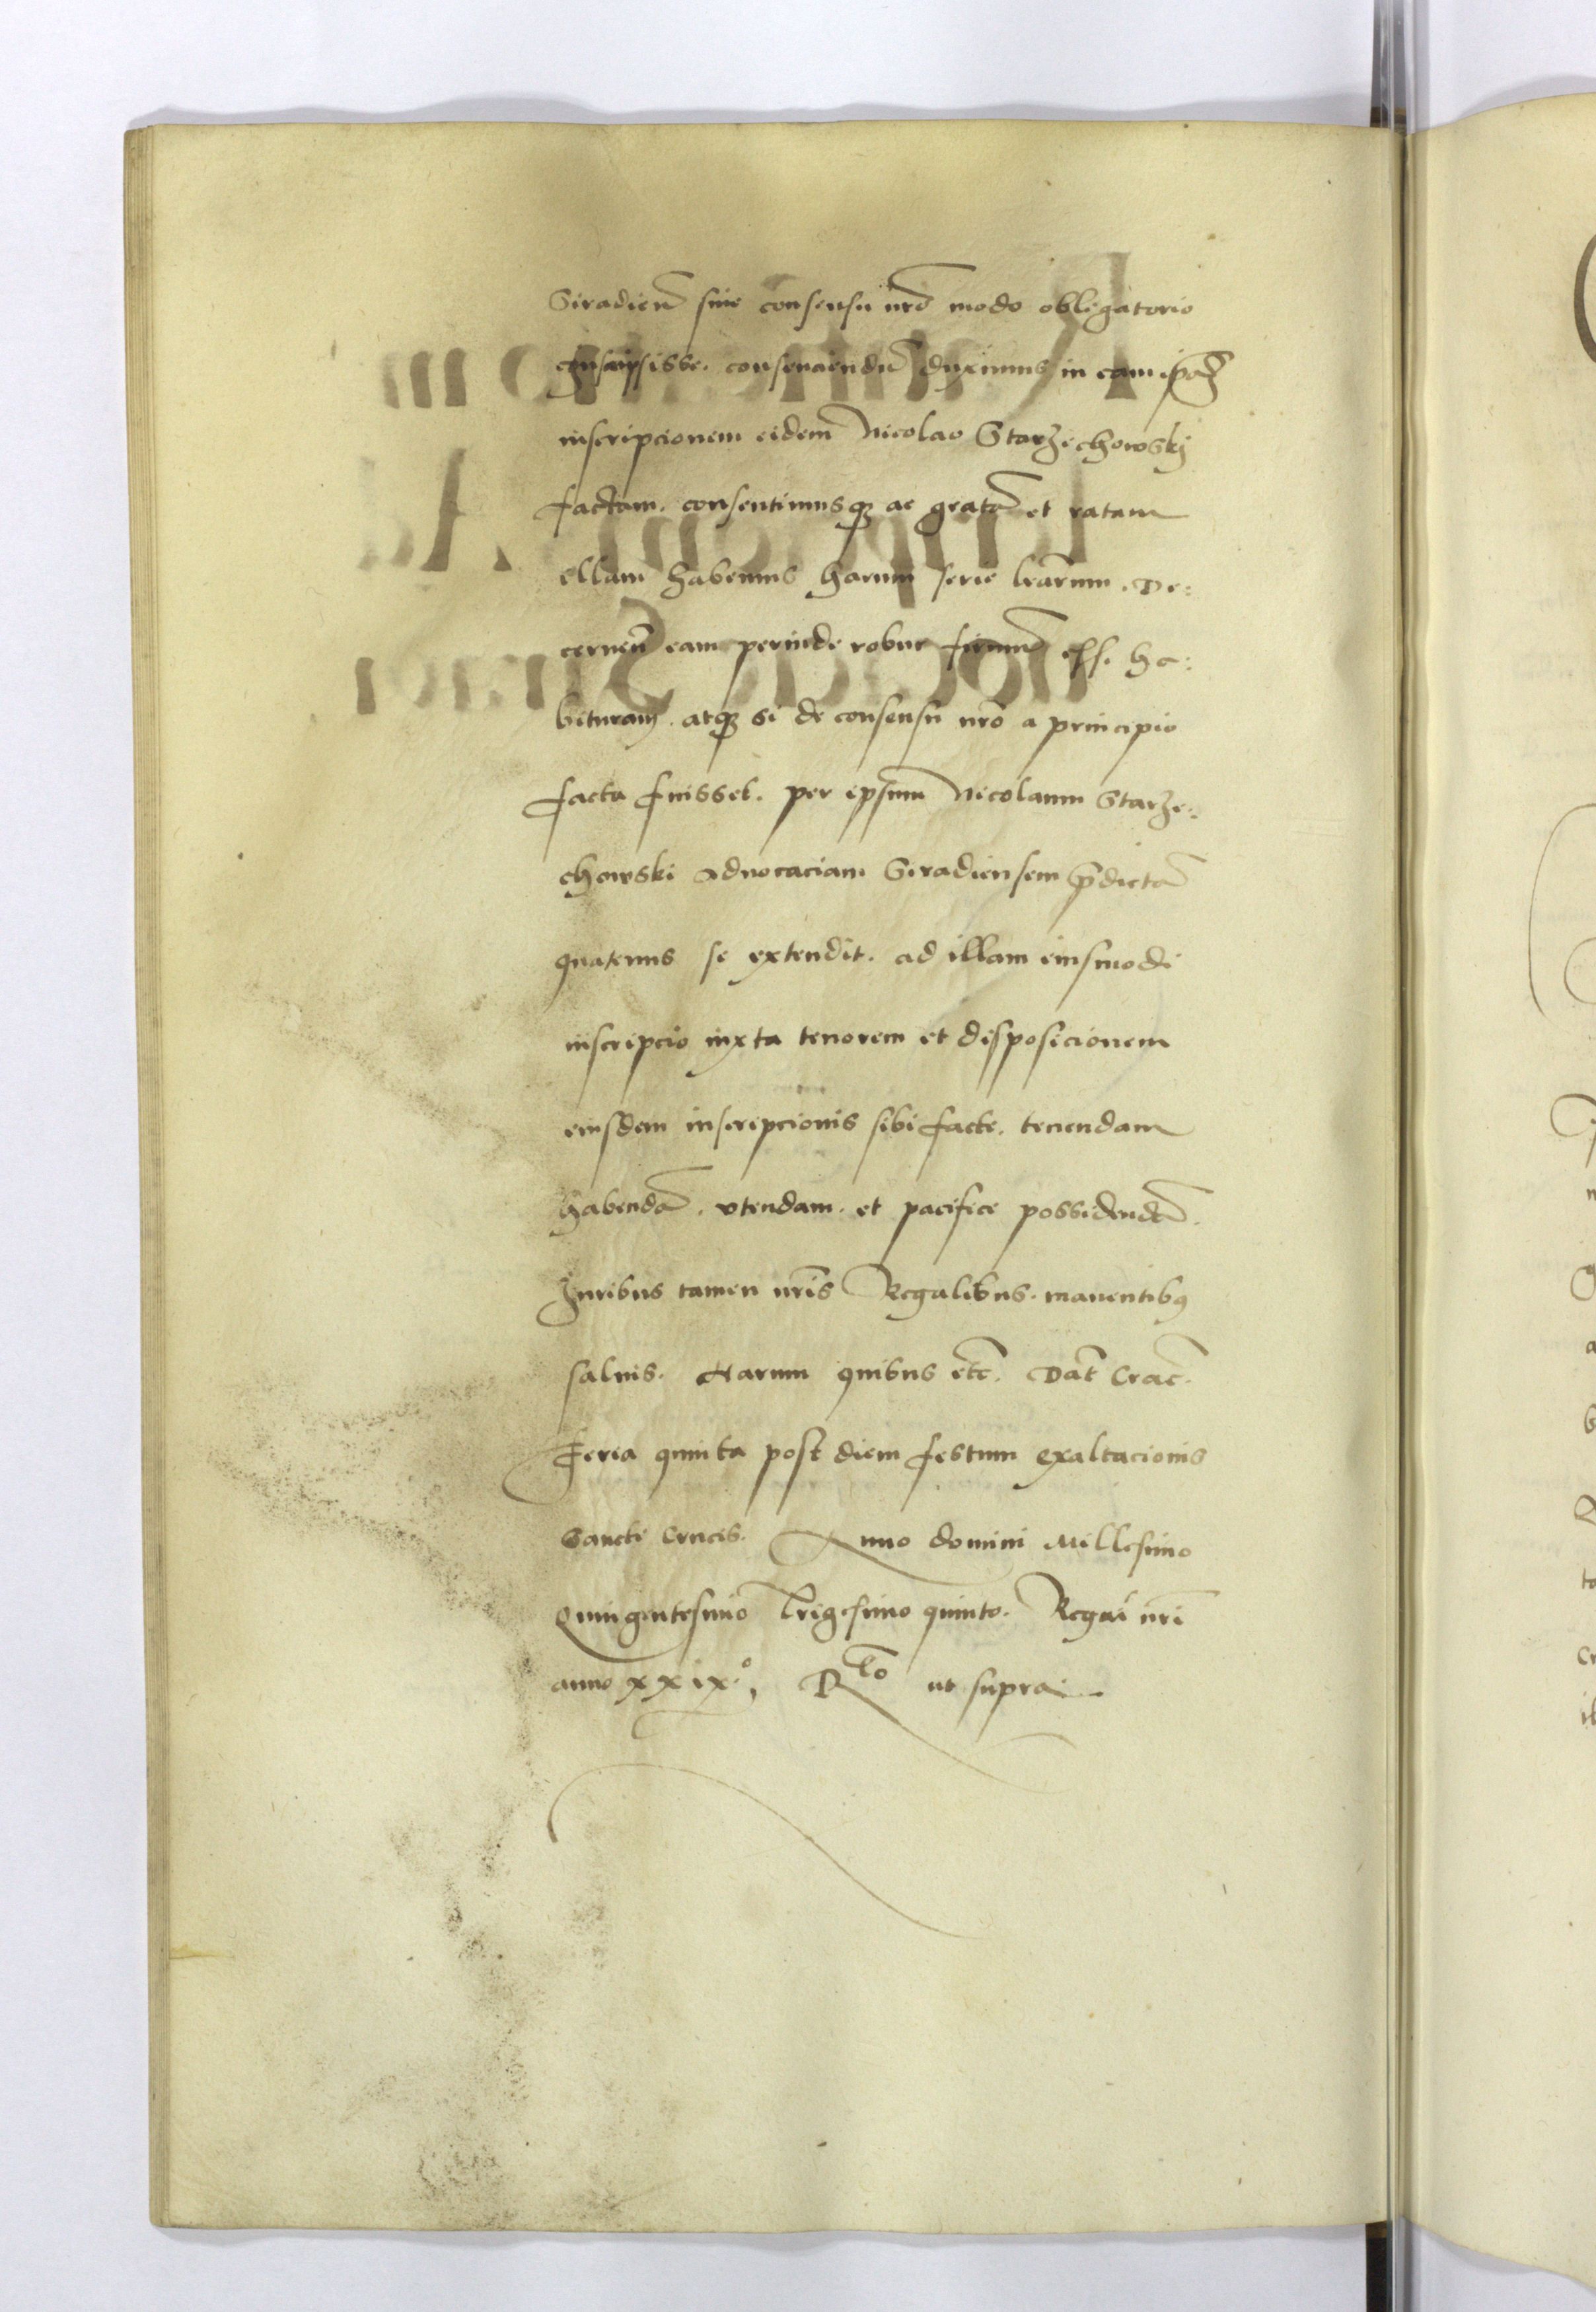 Siradien̄ sine consensu nrō modo obligatorio
conscripsisse. consenciendū duximus in eam
inscripcionem eidem Nicolao Starzechowskj
factam. consentimusqꝫ ac gratā et ratam
illam habemus harum serie lrārum. De:
cernen̄ eam perinde robur firmū esse ha:
bituram. atqꝫ si de consensu nrō a principio
facta fuisset. per ipsum Nicolaum Starze:
chowski advocaciam Siradiensem p̄dictā
quatenus se extendit. ad illam eiusmodi
inscripcio iuxta tenorem et disposicionem
eiusdem inscripcionis sibi facte. tenendam
habendā. utendam. et pacifice possidendā.
Iuribus tamen nrīs Regalibus. manentibꝰ
saluis. Harum quibus etc̄. Dat̄ Crac̄.
feria quinta post diem festum exaltacionis
Sancte Crucis. Anno domini Millesimo
Quingentesimo Trigesimo quinto. Regni nrī
anno xxix.º, Rᵗⁱᵒ ut supra.